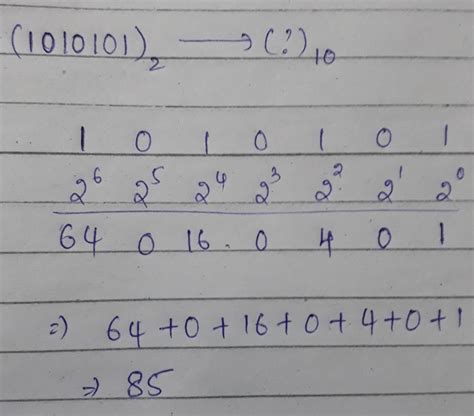 (1010101)₂ ⟶ (?)₁₀
1 0 1 0 1 0 1
2⁶ 2⁵ 2⁴ 2³ 2² 2¹ 2⁰
64 0 16 0 4 0 1
⇒ 64+0+16+0+4+0+1
⇒ 85